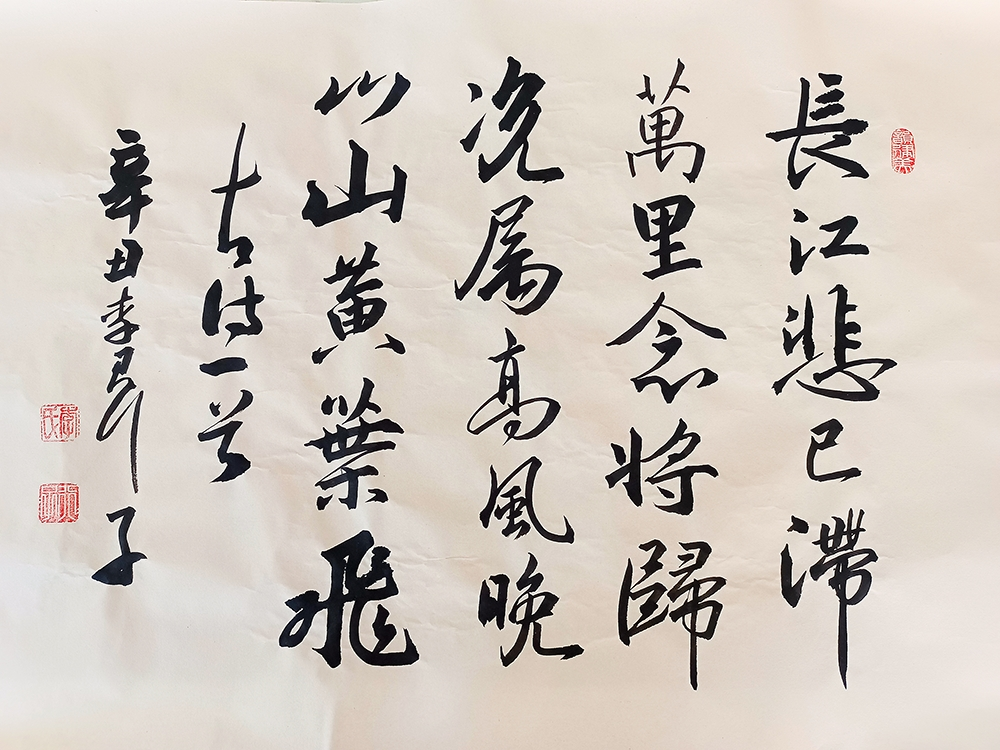 長江悲已滯
萬里念將歸
况属高風晚
山山黄葉飛
古诗一首
辛丑李子